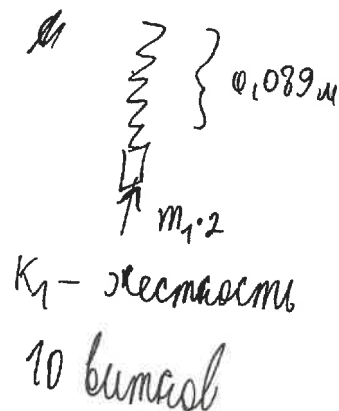 0,089 м
m₁·2
K₁ – жесткость
10 витков